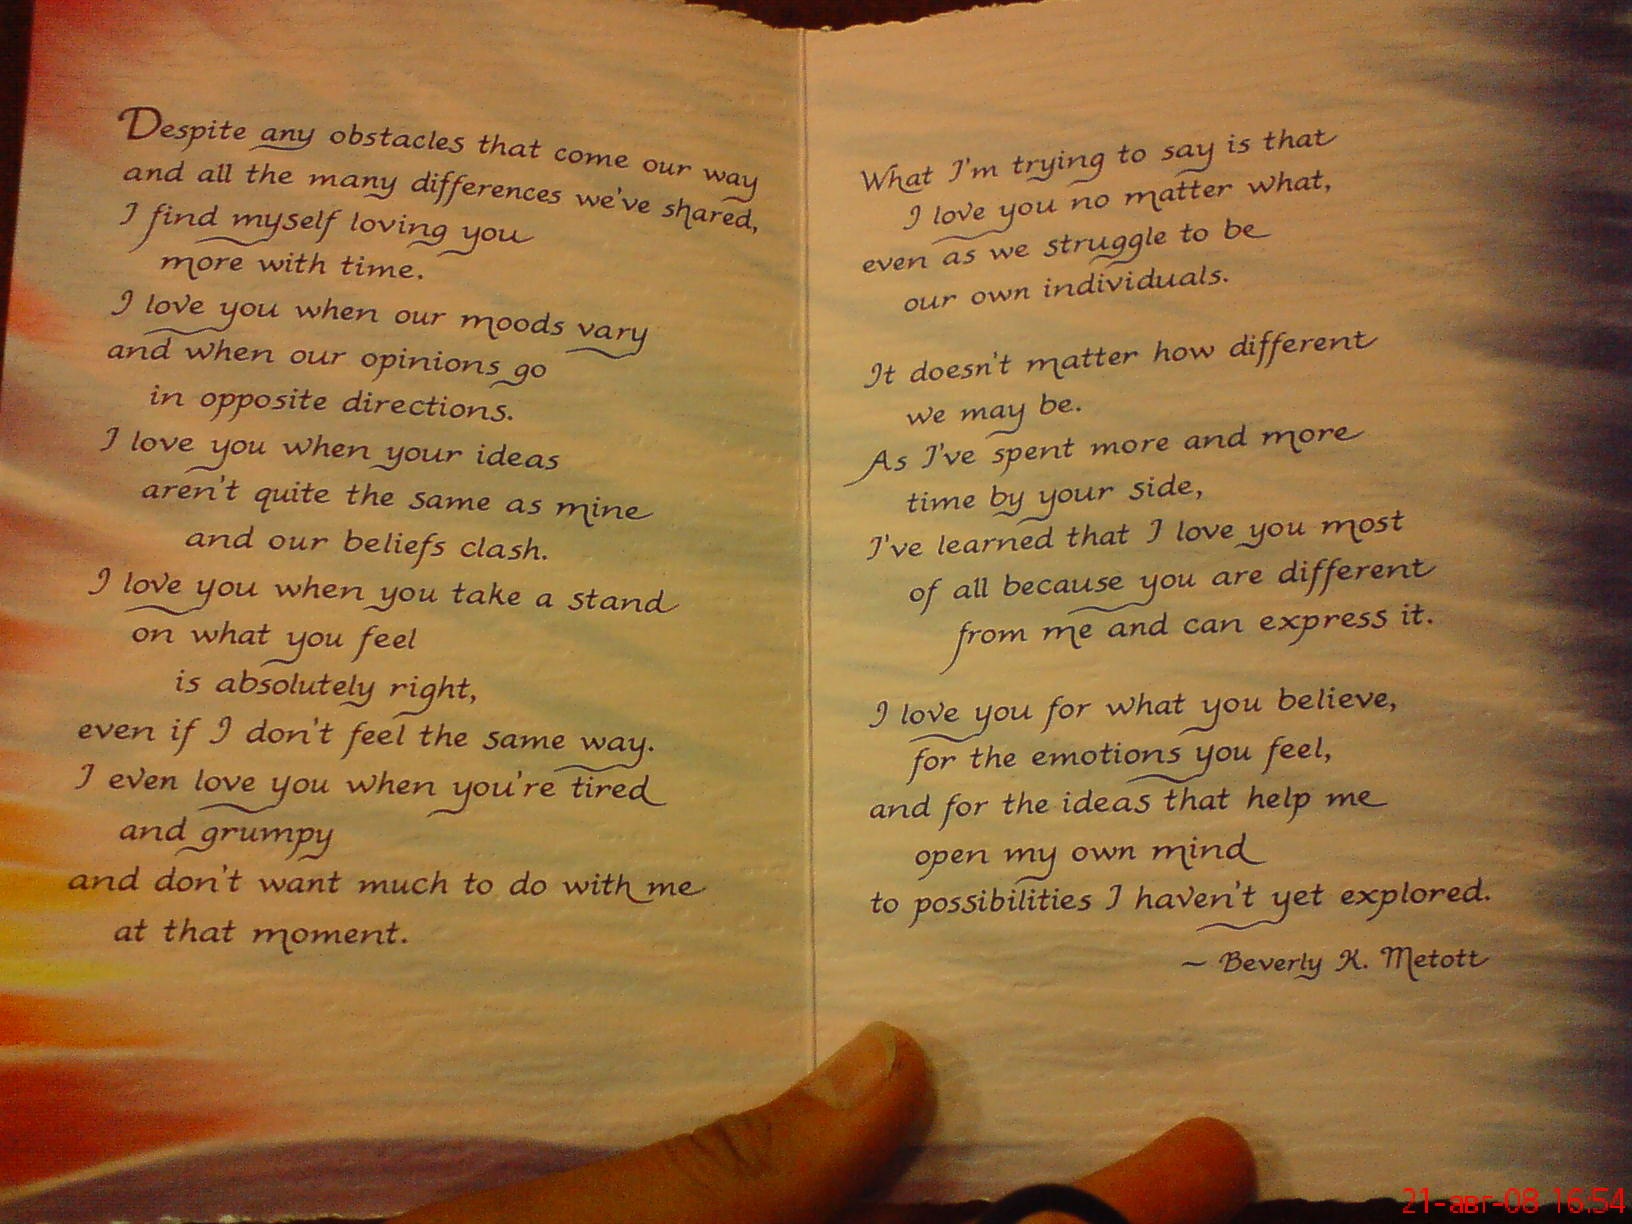 Despite any obstacles that come our way
and all the many differences we've shared,
I find myself loving you
more with time.
I love you when our moods vary
and when our opinions go
in opposite directions.
I love you when your ideas
aren't quite the same as mine
and our beliefs clash.
I love you when you take a stand
on what you feel
is absolutely right,
even if I don't feel the same way.
I even love you when you're tired
and grumpy
and don't want much to do with me
at that moment.
What I'm trying to say is that
I love you no matter what,
even as we struggle to be
our own individuals.
It doesn't matter how different
we may be.
As I've spent more and more
time by your side,
I've learned that I love you most
of all because you are different
from me and can express it.
I love you for what you believe,
for the emotions you feel,
and for the ideas that help me
open my own mind
to possibilities I haven't yet explored.
~ Beverly K. Metott
21-авг-08 16:54